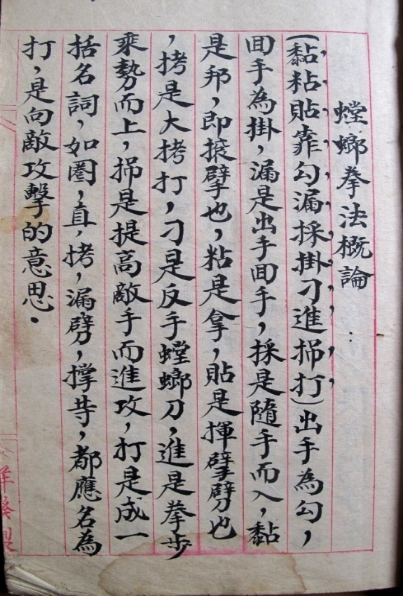 螳螂拳法概論
(黏粘貼靠勾漏採掛刁進掃打)出手為勾，
回手為掛，漏是出手回手，採是隨手而入，黏
是邦，即擘也，粘是拿，貼是揮擘劈也
，拷是大拷打，刁是反手螳螂刀，進是拳步
乘勢而上，掃是提高敵手而進攻，打是成一
括名詞，如圈，直，拷，漏劈，撑等，都應名為
打，是向敵攻擊的意思．